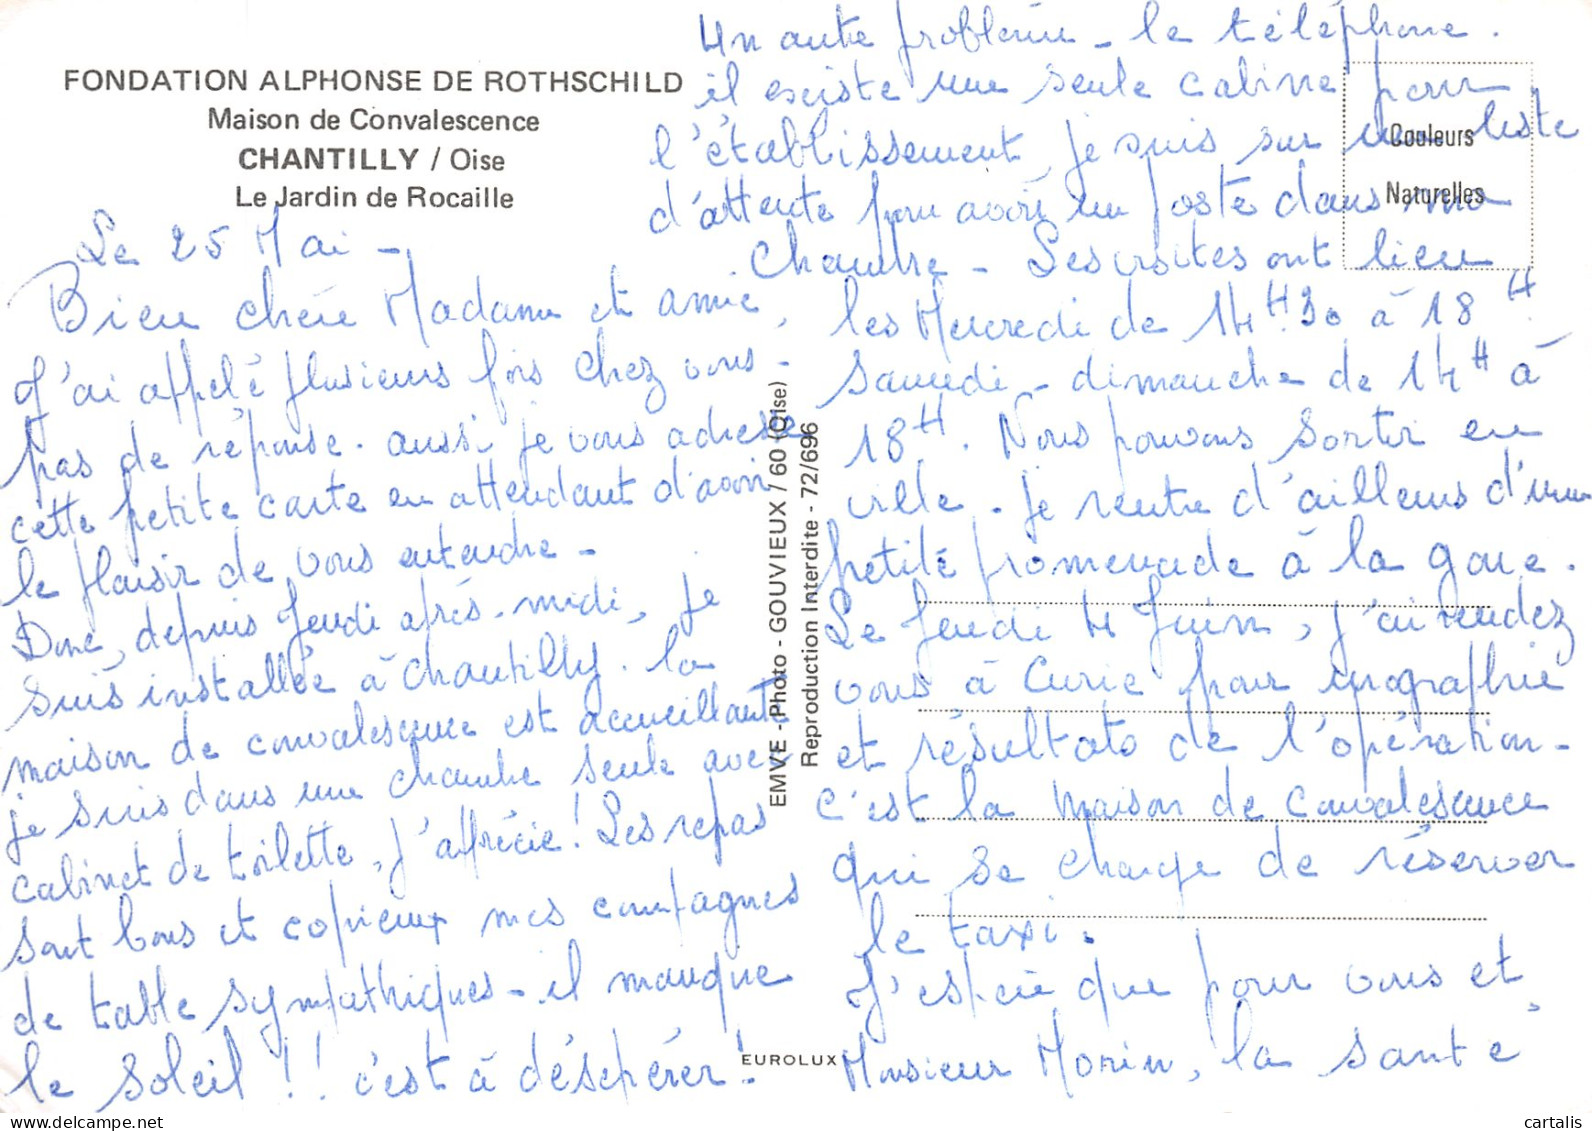 FONDATION ALPHONSE DE ROTHSCHILD
Maison de Convalescence
CHANTILLY / Oise
Le Jardin de Rocaille
Le 25 Mai -
Bien chère Madame et amie,
J'ai appelé plusieurs fois chez vous -
pas de réponse. aussi je vous adresse
cette petite carte en attendant d'avoir
le plaisir de vous entendre -
Donc, depuis Jeudi après-midi, je
suis installée à Chantilly. la
maison de convalescence est accueillante
je suis dans une chambre seule avec
cabinet de toilette, j'apprécie! Les repas
sont bons et copieux mes compagnes
de table sympathiques - il manque
le soleil!! c'est à désespérer!
Un autre problème - le téléphone.
il existe une seule cabine pour
l'établissement, je suis sur une liste
d'attente pour avoir un poste dans ma
chambre - Les visites ont lieu
les Mercredi de 14H30 à 18H.
samedi - dimanche de 14H à
18H. Nous pouvons sortir en
ville. Je rentre d'ailleurs d'une
petite promenade à la gare.
Le Jeudi 4 Juin, j'ai rendez
vous à Curie pour
et résultats de l'opération -
c'est la maison de convalescence
qui se charge de réserver
le taxi.
J'espère que pour vous et
Monsieur Morin, la santé
Couleurs
Naturelles
EMVE - Photo - GOUVIEUX / 60 (Oise)
Reproduction Interdite - 72/696
EUROLUX
delcampe.net
cartalis